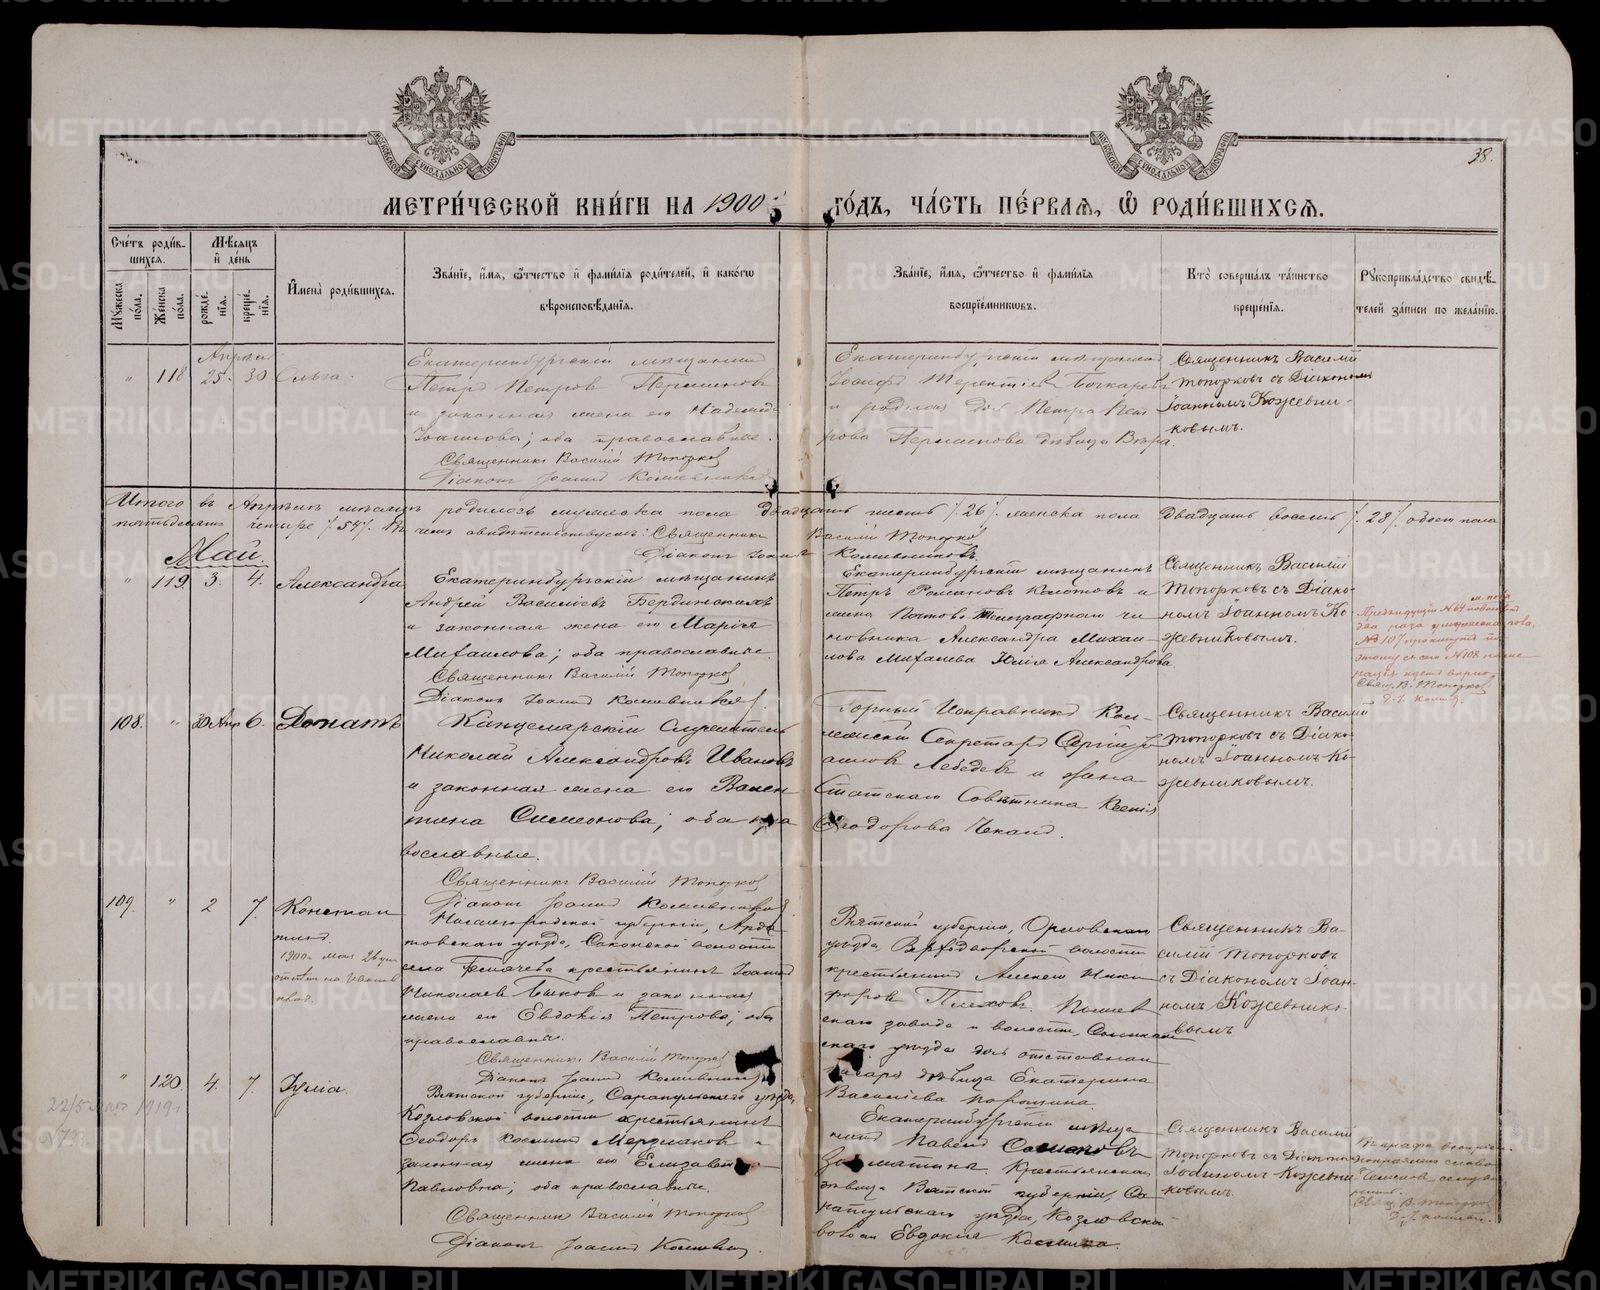 38.
МЕТРИ́ЧЕСКОЙ КНИ́ГИ НА 1900 ГО́ДЪ, ЧА́СТЬ ПЕ́РВАЯ, Ѡ РОДИ́ВШИХСЯ.
Сче́тъ роди́вшихся.
Мѣ́сяцъ и де́нь
Му́жеска по́ла.
Же́нска по́ла.
рожде́нїя.
креще́нїя.
И́мена̀ роди́вшихся.
Зва́нїе, и́мя, ѻ҆́тчество и фами́лїя роди́телей, и како́гѡ вѣроисповѣ́данїя.
Зва́нїе, и́мя, ѻ҆́тчество и фами́лїя воспрїе́мникѡвъ.
Кто̀ соверша́лъ та́инство креще́нїя.
Рꙋкоприкла́дство свидѣ́телей за́писи по жела́нїю.
Апрѣля
" 118 25. 30 Ольга.
Екатеринбургскій мѣщанинъ
Петръ Петровъ Перминовъ
и законная жена его Надежда
Іоаннова; оба православные.
Священникъ Василій Топорковъ
Діаконъ Іоаннъ Кожевниковъ
Екатеринбургскій мѣщанинъ
Іосифъ Терентіевъ Бочкаревъ
и родная дочь Петра Пет
рова Перминова дѣвица Вѣра.
Священникъ Василій
Топорковъ съ Діакономъ
Іоанномъ Кожевни-
ковымъ.
Итого въ Апрѣлѣ мѣсяцѣ родилось мужеска пола двадцать шесть /.26/. женска пола двадцать восемь /.28/. обоего пола
пятьдесятъ четыре /.54/. въ чемъ свидѣтельствуемъ: Священникъ Василій Топорковъ
Діаконъ Іоаннъ Кожевниковъ
Май.
" 119 3. 4. Александра
Екатеринбургскій мѣщанинъ
Андрей Василіевъ Бердинскихъ
и законная жена его Марія
Михаилова; оба православные.
Священникъ Василій Топорковъ
Діаконъ Іоаннъ Кожевниковъ
Екатеринбургскій мѣщанинъ
Петръ Романовъ Колотовъ и
жена Почтово-Телеграфнаго чи
новника Александра Михаи
лова Михалева Юлія Александрова.
Священникъ Василій
Топорковъ съ Діако-
номъ Іоанномъ Ко-
жевниковымъ.
Предыдущій №64
два раза
№ 107
№108
Свящ. В. Топорковъ
108. " 30 Апр. 6. Донатъ
Канцелярскій Служитель
Николай Александровъ Ивановъ
и законная жена его Вален
тина Симеонова; оба пра
вославные.
Священникъ Василій Топорковъ
Діаконъ Іоаннъ Кожевниковъ
Горный Исправникъ Кол-
лежскій Секретарь Сергій
Лебедевъ и жена
Статскаго Совѣтника Ксенія
Ѳеодорова
Священникъ Василій
Топорковъ съ Діако-
номъ Іоанномъ Ко-
жевниковымъ.
109. " 2 7. Констан
тинъ.
1900 г. мая 26
Нижегородской губерніи, Арда
товскаго уѣзда, Саконской волости
села крестьянинъ Іоаннъ
Николаевъ Быковъ и законная
жена его Евдокія Петрова; оба
православные.
Священникъ Василій Топорковъ
Діаконъ Іоаннъ Кожевниковъ
Вятской губерніи, Орловскаго
уѣзда волости
крестьянинъ Алексѣй Ники
форовъ
скаго завода и волости, Соликам
скаго уѣзда дочь отставнаго
дѣвица Екатерина
Василіева
Священникъ Ва-
силій Топорковъ
съ Діакономъ Іоан-
номъ Кожевнико-
вымъ
" 120 4. 7. Іулія.
22/5 1919 г.
Вятской губерніи, Сарапульскаго уѣзда,
Козловской волости крестьянинъ
Ѳеодоръ Косминъ и
законная жена его Елизавета
Павловна; оба православные.
Священникъ Василій Топорковъ
Діаконъ Іоаннъ Кожевниковъ.
Екатеринбургскій мѣща
нинъ Павелъ
крестьянская
дѣвица Вятской губерніи, Са
рапульскаго уѣзда, Козловской
волости Евдокія Космина.
Священникъ Василій
Топорковъ съ Діакономъ
Іоанномъ Кожевни
ковымъ.
Свящ. В. Топорковъ